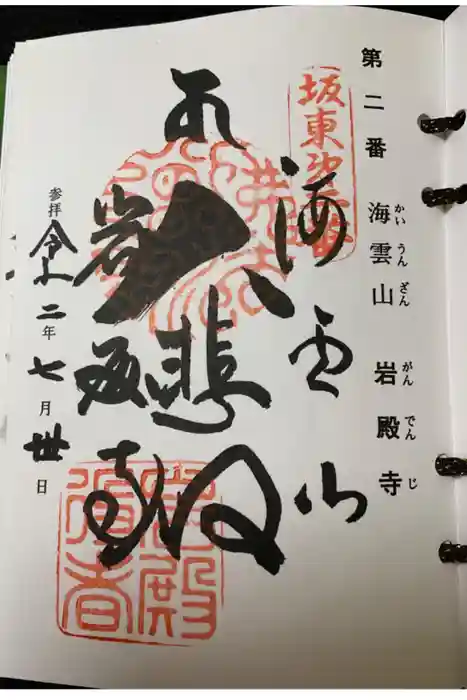 第二番 海雲山 岩殿寺
かいうんざん がんでんじ
坂東第二番
海雲山
大悲殿
岩殿寺
参拝 令和二年七月卅日